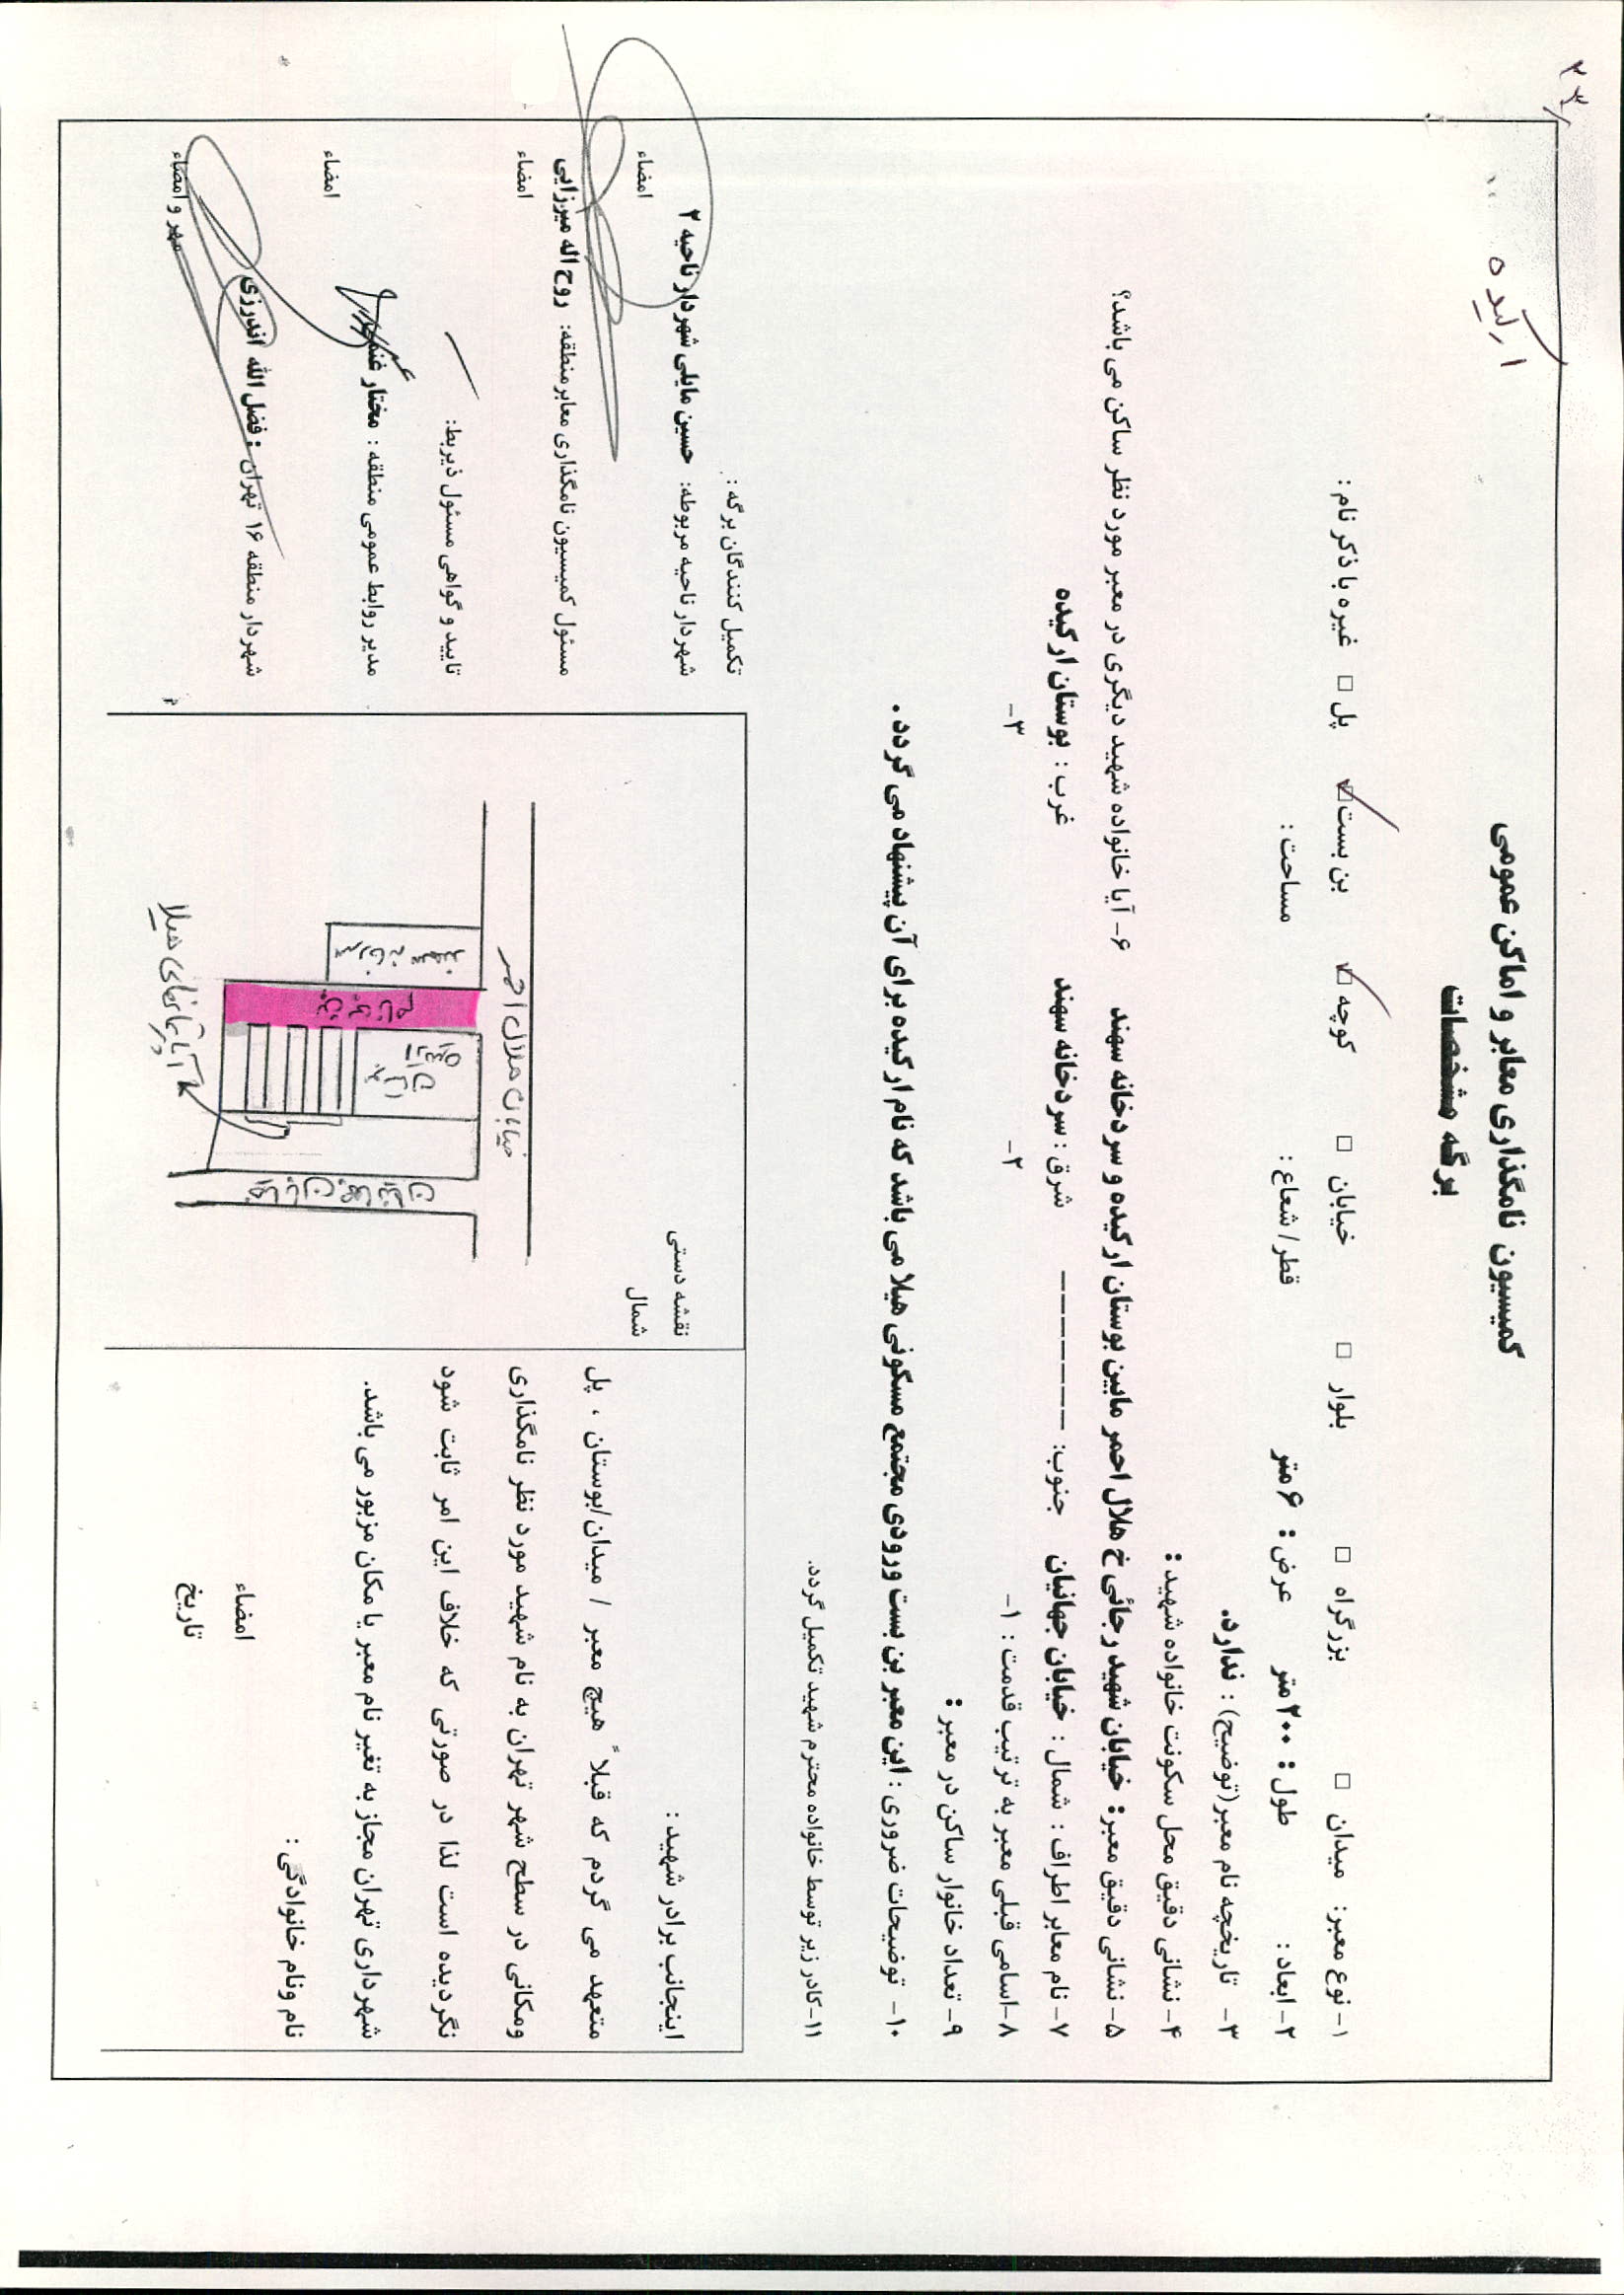 ۲۴
ارکیده
کمیسیون نامگذاری معابر و اماکن عمومی
برگه مشخصات
۱- نوع معبر: میدان □ بزرگراه □ بلوار □ خیابان □ کوچه □ بن بست □ پل □ غیره با ذکر نام :
۲- ابعاد : طول : ۲۰۰متر عرض : ۶متر قطر/ شعاع : مساحت :
۳- تاریخچه نام معبر(توضیح) : ندارد.
۴- نشانی دقیق محل سکونت خانواده شهید :
۵- نشانی دقیق معبر: خیابان شهید رجائی خ هلال احمر مابین بوستان ارکیده و سردخانه سهند ۶- آیا خانواده شهید دیگری در معبر مورد نظر ساکن می باشد؟
۷- نام معابر اطراف : شمال : خیابان جهانیان جنوب: ------- شرق : سردخانه سهند غرب : بوستان ارکیده
۸-اسامی قبلی معبر به ترتیب قدمت : ۱- ۲- ۳-
۹- تعداد خانوار ساکن در معبر :
۱۰- توضیحات ضروری : این معبر بن بست ورودی مجتمع مسکونی هیلا می باشد که نام ارکیده برای آن پیشنهاد می گردد .
۱۱-کادر زیر توسط خانواده محترم شهید تکمیل گردد.
اینجانب برادر شهید :
متعهد می گردم که قبلاً هیچ معبر / میدان/بوستان ، پل
ومکانی در سطح شهر تهران به نام شهید مورد نظر نامگذاری
نگردیده است لذا در صورتی که خلاف این امر ثابت شود
شهرداری تهران مجاز به تغیر نام معبر یا مکان مزبور می باشد.
نام ونام خانوادگی :
امضاء
تاریخ
نقشه دستی
شمال
خیابان هلال احمر
سردخانه سهند
بن بست
بوستان ارکیده
آپارتمانهای هیلا
تکمیل کنندگان برگه :
شهردار ناحیه مربوطه: حسین مایلی شهردار ناحیه ۲
امضاء
مسئول کمیسیون نامگذاری معابرمنطقه: روح اله میرزایی
امضاء
تایید و گواهی مسئول ذیربط:
مدیر روابط عمومی منطقه : مختار
امضاء
شهردار منطقه ۱۶ تهران : فضل الله اندرزی
مهر و امضاء